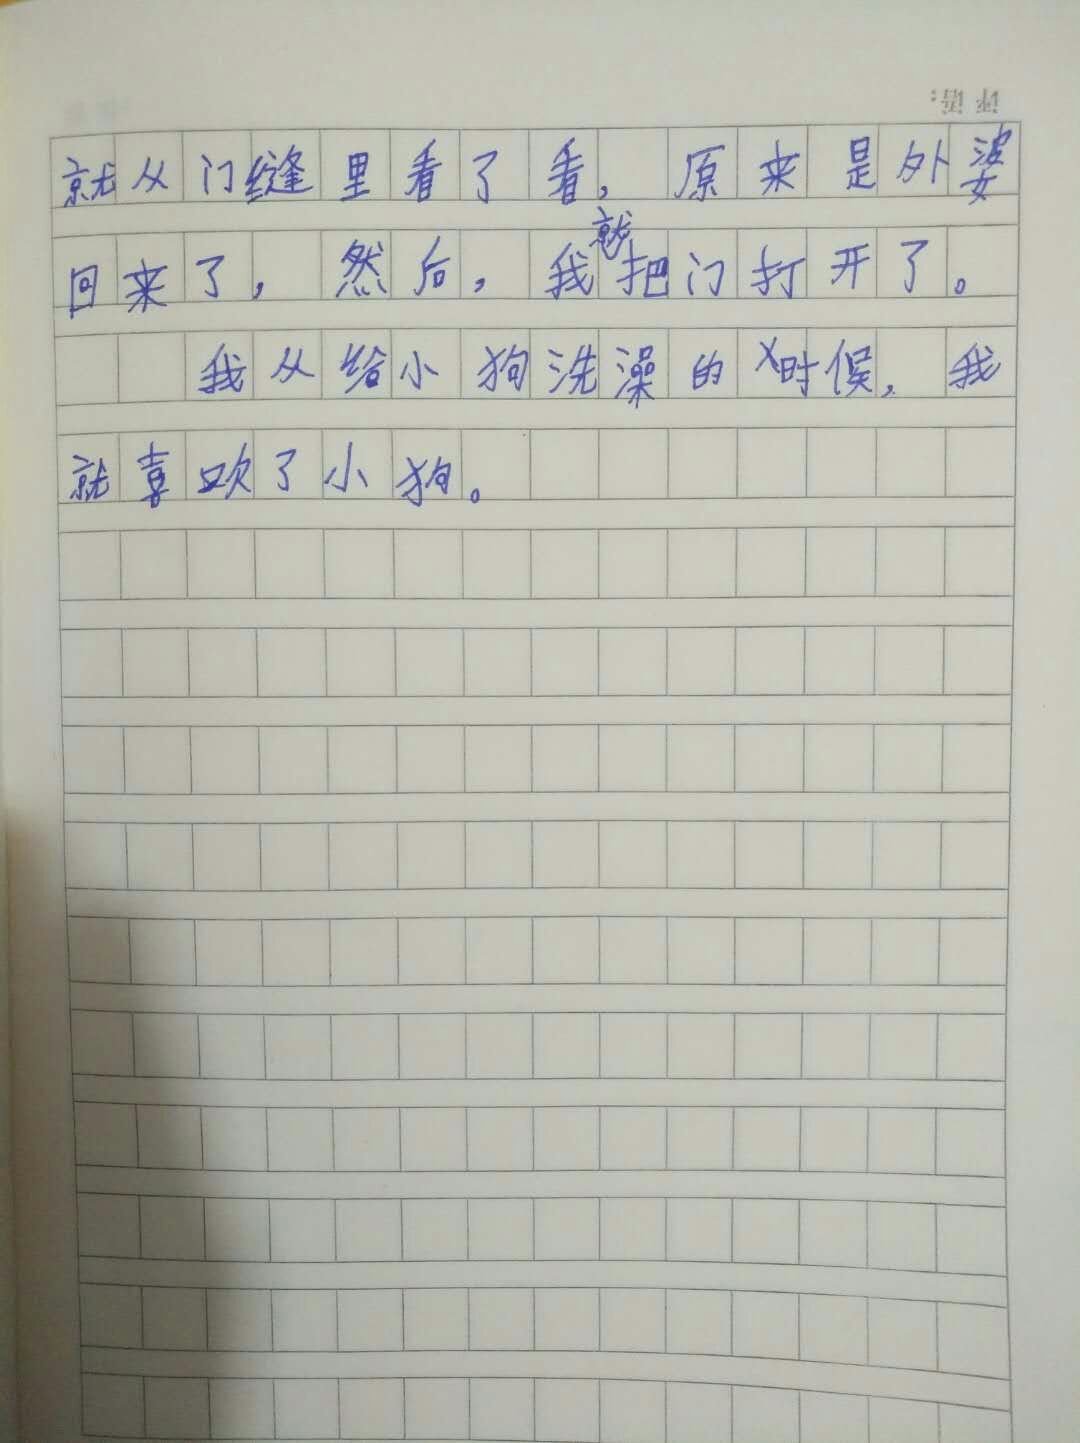 就从门缝里看了看,原来是外婆
回来了,然后,我就把门打开了。
我从给小狗洗澡的时候,我
就喜欢了小狗。